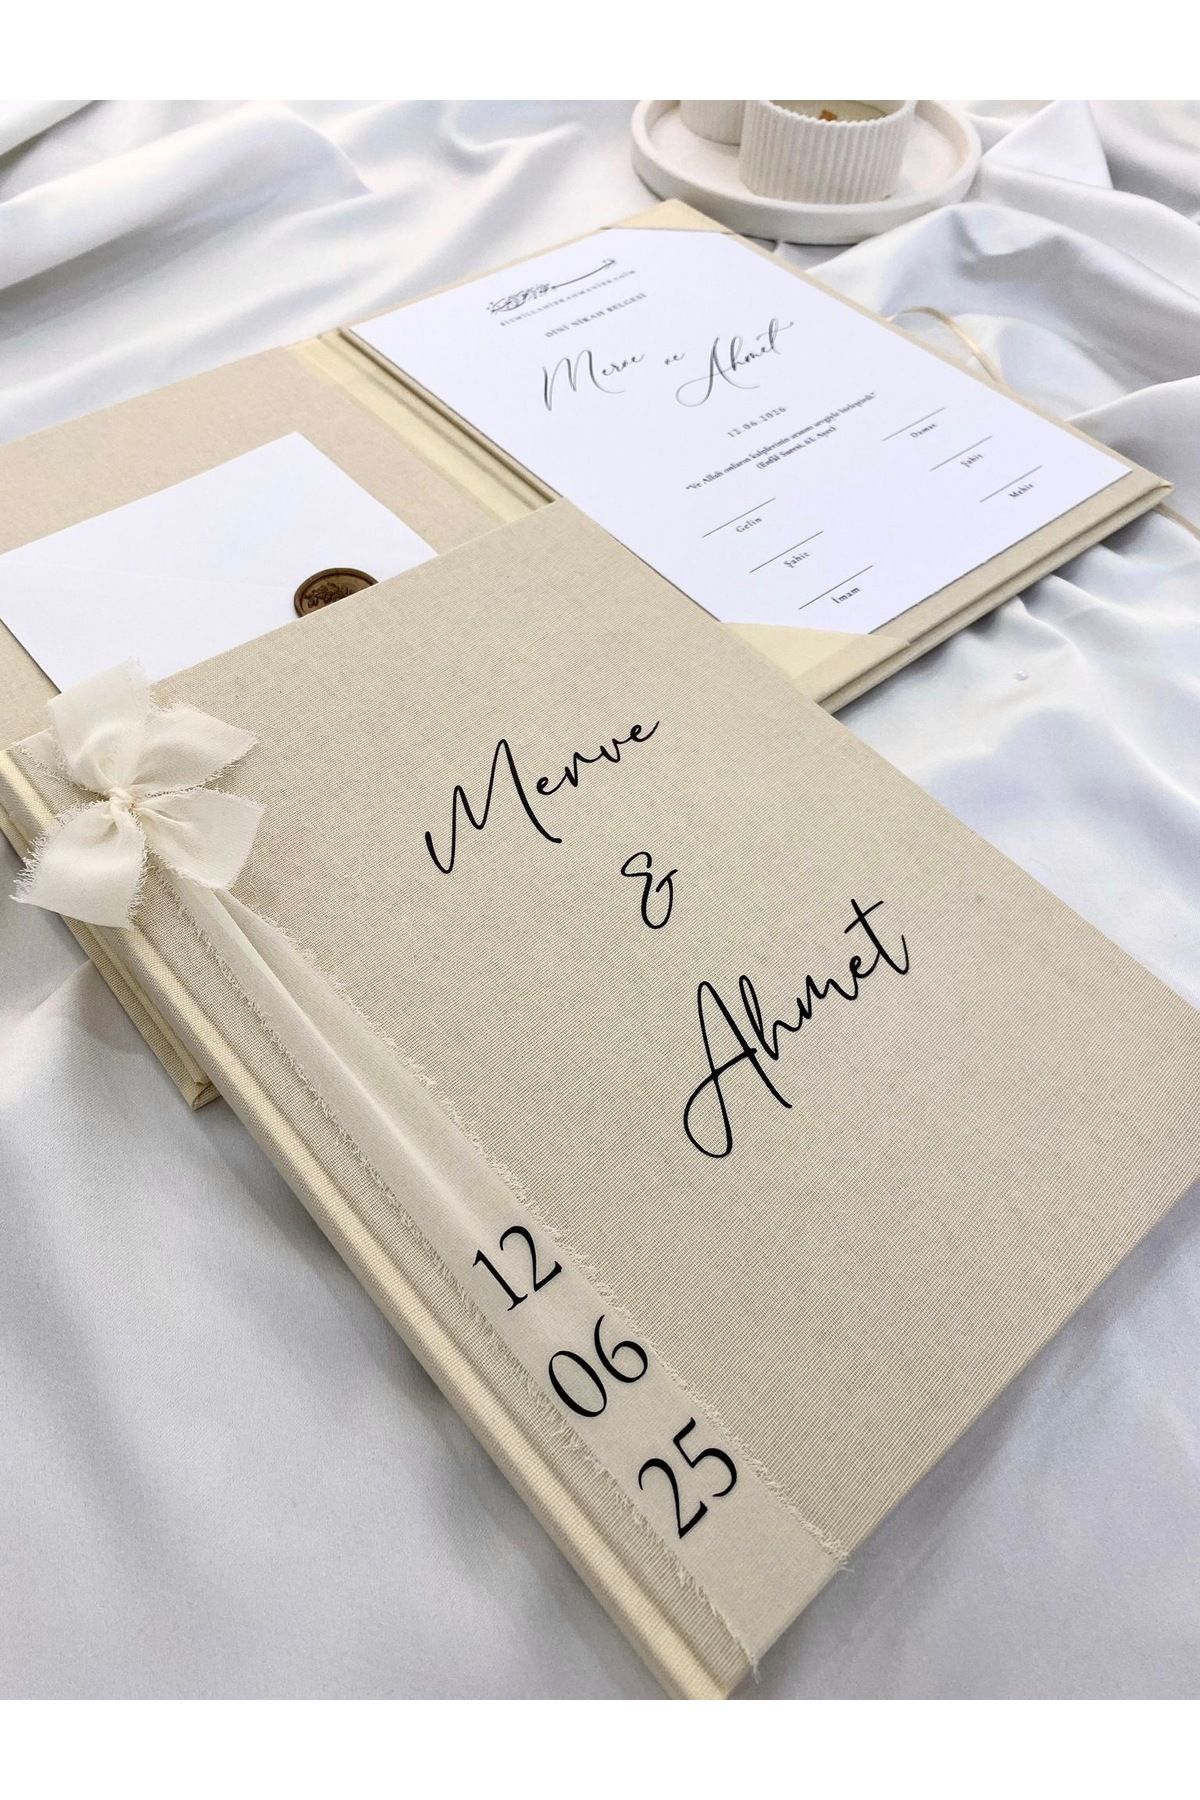 BİSMİLLAHİRRAHMANİRRAHİM
DİNİ NİKAH BELGESİ
Merve ve Ahmet
12.06.2026
"Ve Allah onların kalplerinin arasını sevgiyle birleştirdi."
(Enfâl Suresi, 63. Ayet)
Gelin
Damat
Şahit
Şahit
İmam
Mehir
Merve
&
Ahmet
12
06
25